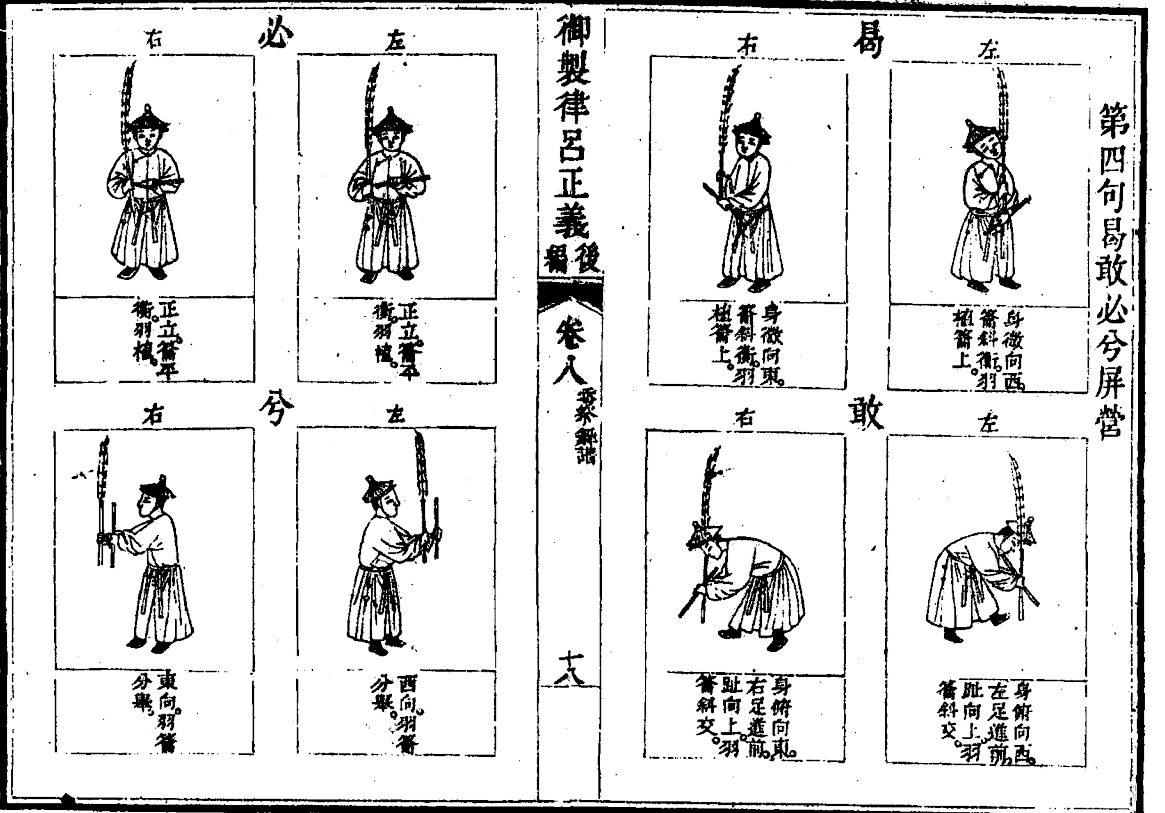 第四句曷敢必兮屏營
曷
左
身微向西。
籥斜衡。羽
植籥上。
右
身微向東。
籥斜衡。羽
植籥上。
敢
左
身俯向西。
左足進前。
趾向上。羽
籥斜交。
右
身俯向東。
右足進前。
趾向上。羽
籥斜交。
御製律呂正義
後編
卷八
祭舞譜
十八
必
左
正立。籥平
衡。羽植。
右
正立。籥平
衡。羽植。
兮
左
西向。羽籥
分舉。
右
東向。羽籥
分舉。